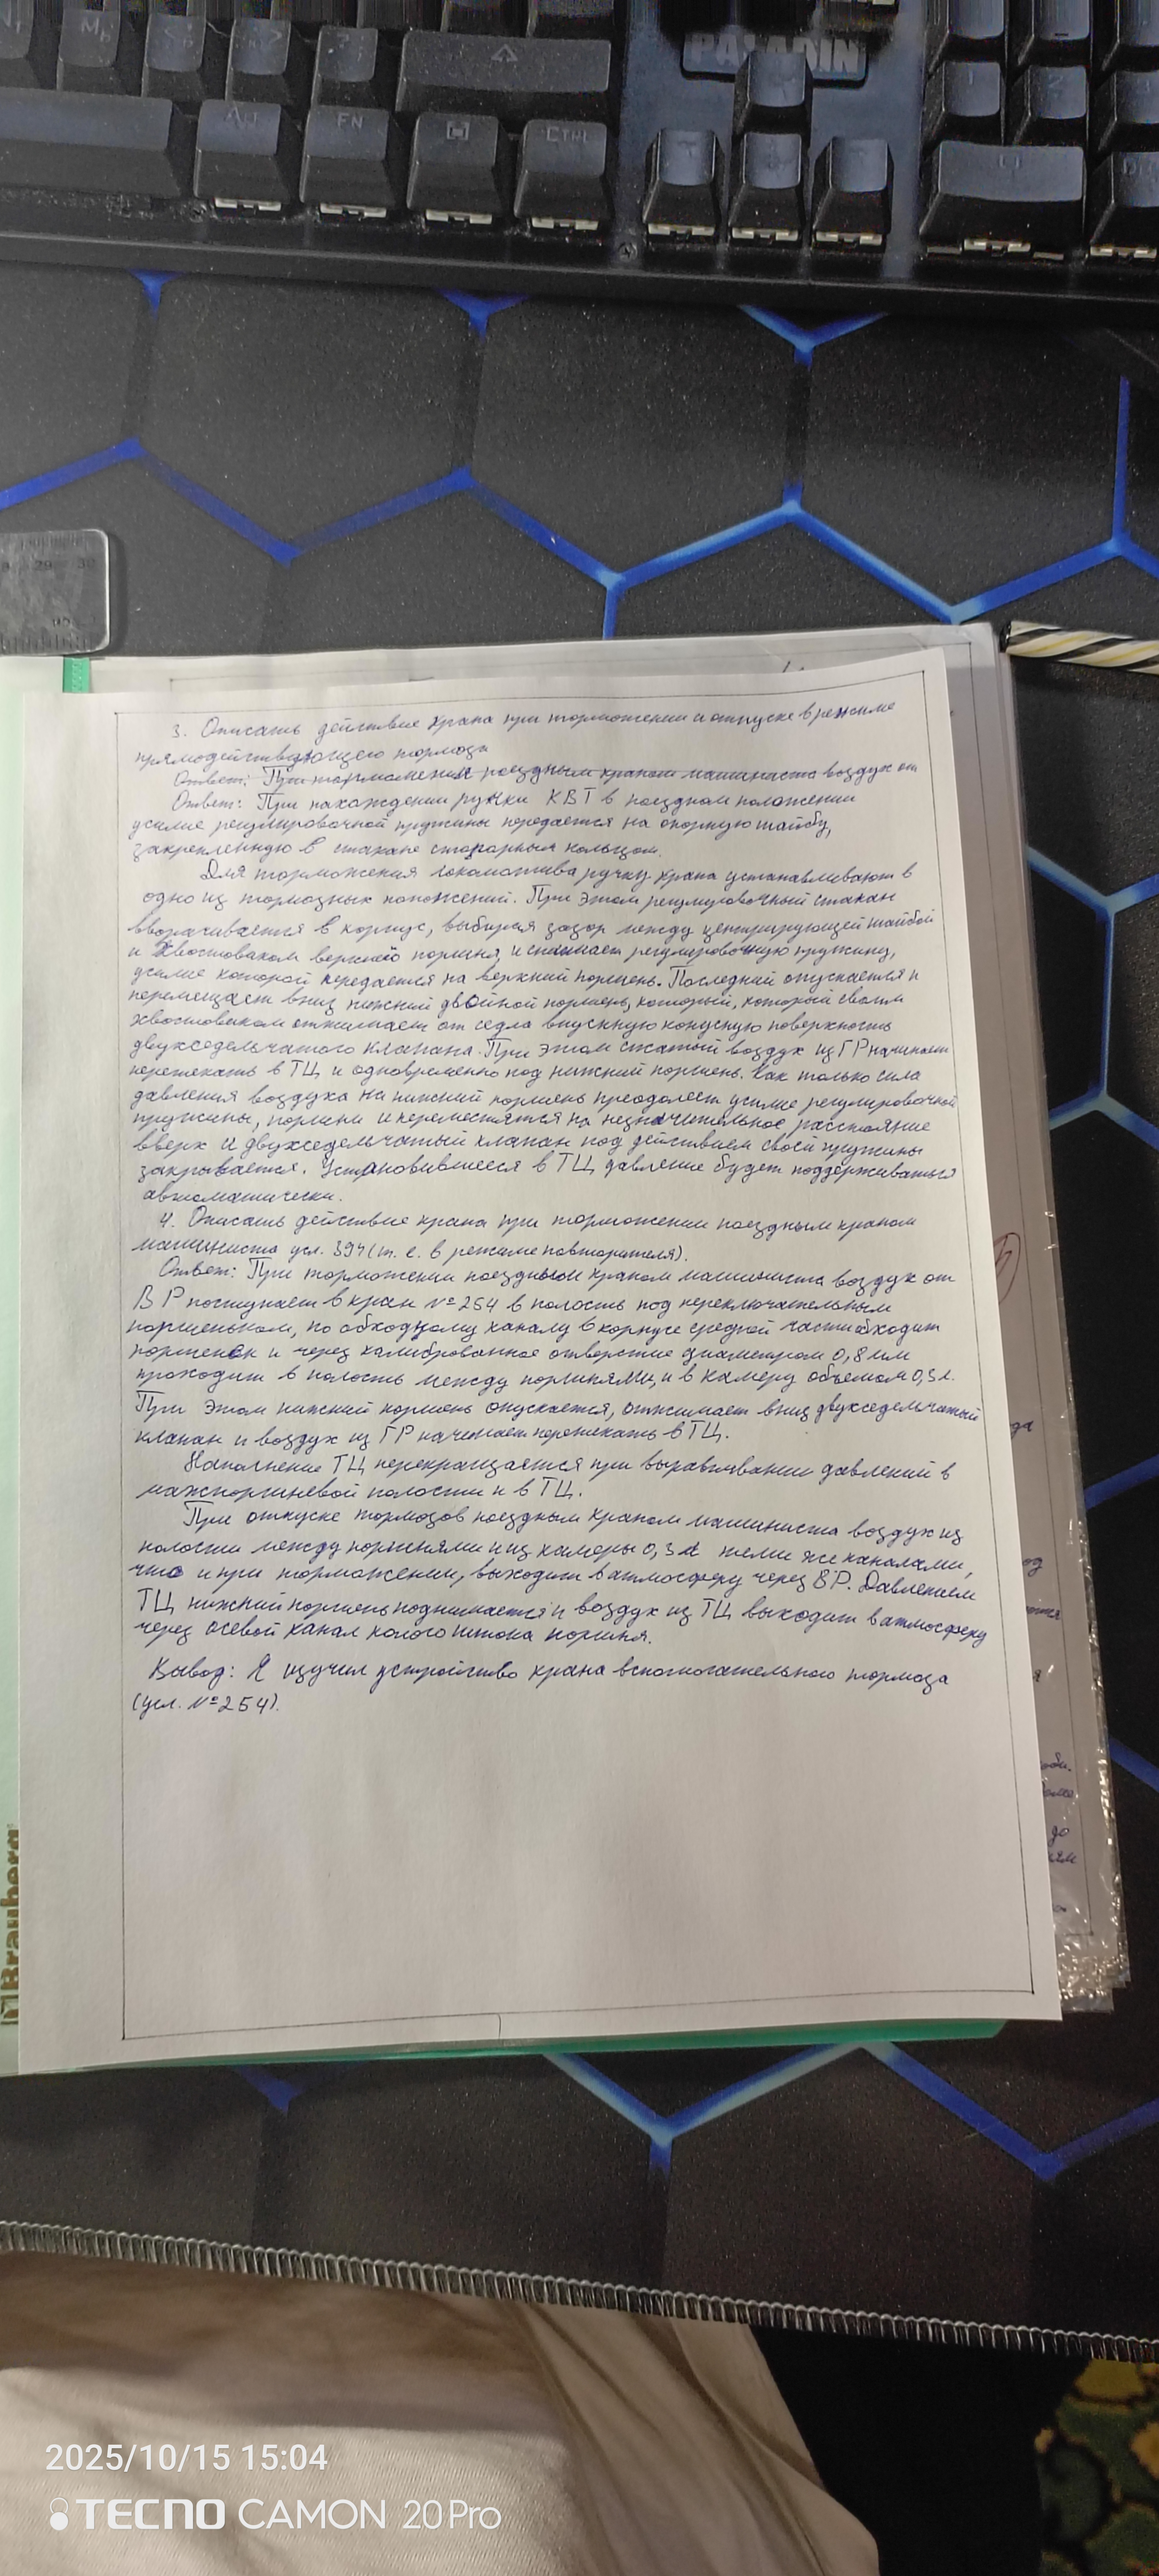 PALADIN
FN
CTRL
3. Описать действие крана при торможении и отпуске в режиме
прямодействующего тормоза
Ответ: При торможении поездным краном машиниста воздух от
Ответ: При нахождении ручки КВТ в поездном положении
усилие регулировочной пружины передается на опорную шайбу,
закрепленную в стакане стопорным кольцом.
Для торможения локомотива ручку крана устанавливают в
одно из тормозных положений. При этом регулировочный стакан
вворачивается в корпус, выбирая зазор между центрирующей шайбой
и хвостовиком верхнего поршня, и сжимает регулировочную пружину,
усилие которой передается на верхний поршень. Последний опускается и
перемещает вниз нижний двойной поршень, который, который своим
хвостовиком отжимает от седла впускную конусную поверхность
двухседельчатого клапана. При этом сжатый воздух из ГР начинает
перетекать в ТЦ и одновременно под нижний поршень. Как только сила
давления воздуха на нижний поршень преодолеет усилие регулировочной
пружины, поршни и переместятся на незначительное расстояние
вверх и двухседельчатый клапан под действием своей пружины
закрывается. Установившееся в ТЦ давление будет поддерживаться
автоматически.
4. Описать действие крана при торможении поездным краном
машиниста усл. 394 (т. е. в режиме повторителя).
Ответ: При торможении поездным краном машиниста воздух от
ВР поступает в кран №254 в полость под переключательным
поршеньком, по обходному каналу в корпусе средней части обходит
поршенёк и через калиброванное отверстие диаметром 0,8 мм
проходит в полость между поршнями, и в камеру объемом 0,3 л.
При этом нижний поршень опускается, отжимает вниз двухседельчатый
клапан и воздух из ГР начинает перетекать в ТЦ.
Наполнение ТЦ перекращается при выравнивании давлений в
межпоршневой полости и в ТЦ.
При отпуске тормозов поездным краном машиниста воздух из
полости между поршнями и из камеры 0,3 л теми же каналами,
что и при торможении, выходит в атмосферу через ВР. Давлением
ТЦ нижний поршень поднимается и воздух из ТЦ выходит в атмосферу
через осевой канал полого штока поршня.
Вывод: Я изучил устройство крана вспомогательного тормоза
(усл. №254).
Brauberg
2025/10/15 15:04
TECNO CAMON 20 Pro